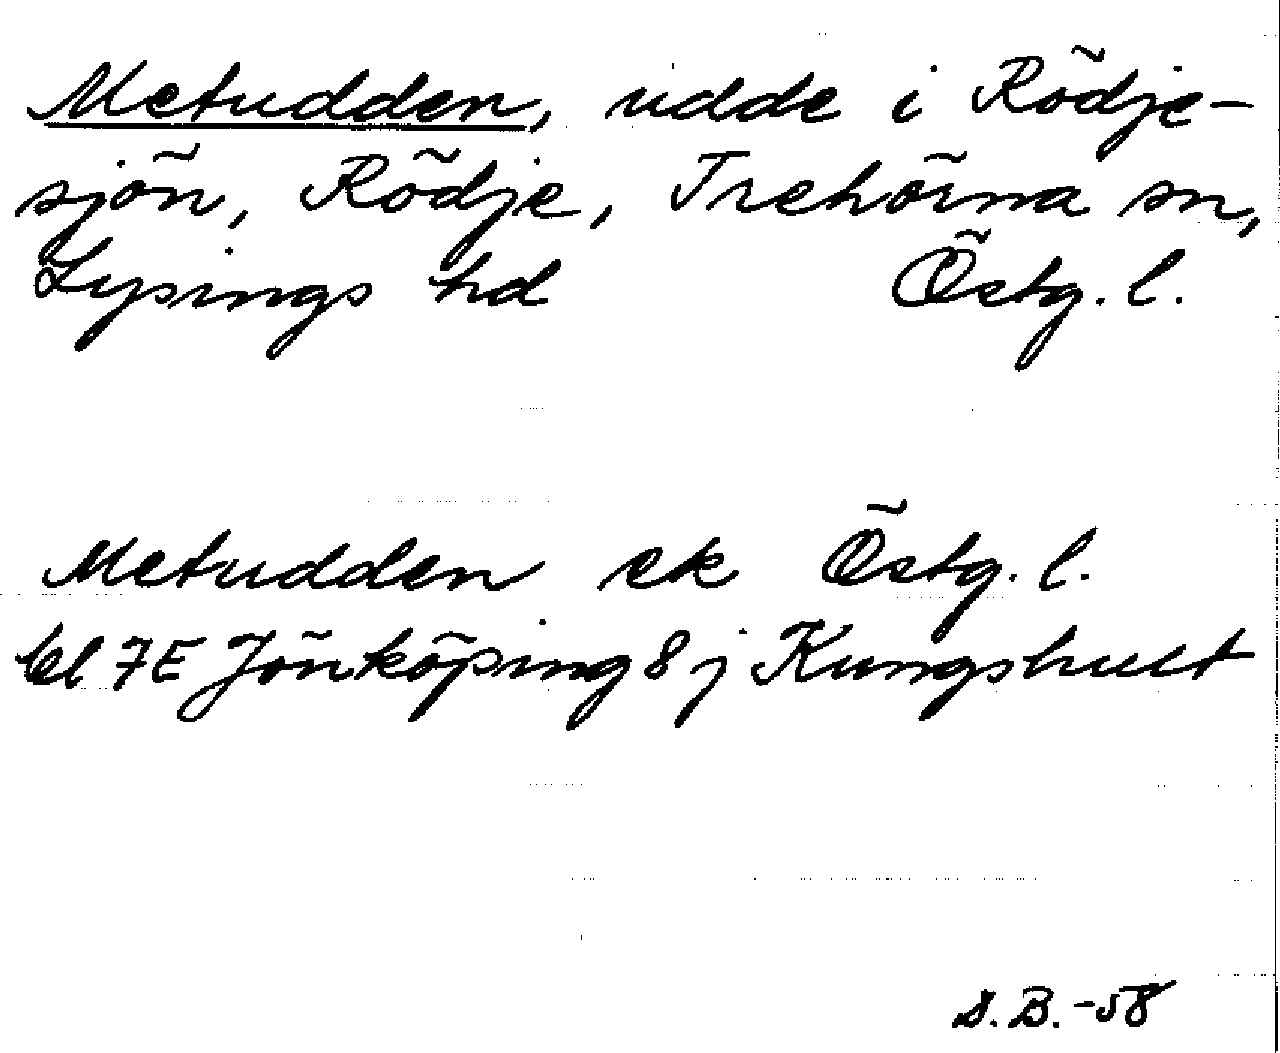 Metudden, udde i Rödje-
sjön, Rödje, Trehörna sn,
Lysings hd Östg. l.
Metudden ek Östg. l.
bl 7E Jönköping 8j Kungshult
S.B. -58